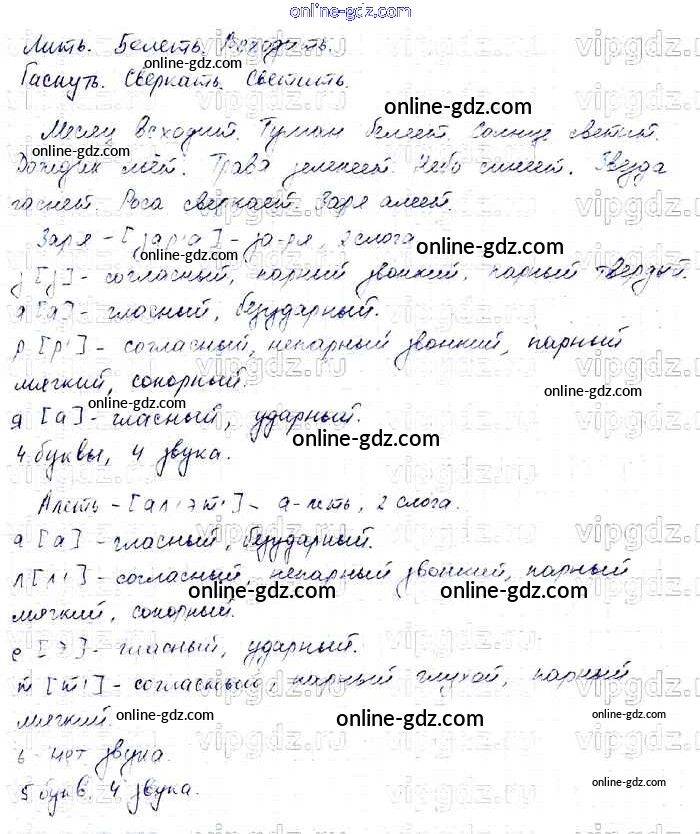 online-gdz.com
Лить. Белеть. Восходить.
Гаснуть. Сверкать. Светить.
online-gdz.com
Месяц всходит. Туман белеет. Солнце светит.
online-gdz.com
Дождик льёт. Трава зеленеет. Небо синеет. Звезда
гаснет. Роса сверкает. Заря алеет.
online-gdz.com
Заря - [зар'а] - за-ря, 2 слога
online-gdz.com
з [з] - согласный, парный звонкий, парный твердый.
а [а] - гласный, безударный.
online-gdz.com
р [р'] - согласный, непарный звонкий, парный
мягкий, сонорный.
online-gdz.com
online-gdz.com
я [а] - гласный, ударный.
online-gdz.com
4 буквы, 4 звука.
Алеть - [ал'эт'] - а-леть, 2 слога.
а [а] - гласный, безударный.
online-gdz.com
л [л'] - согласный, непарный звонкий, парный
мягкий, сонорный.
online-gdz.com
online-gdz.com
е [э] - гласный, ударный.
т [т'] - согласный, парный глухой, парный
мягкий.
online-gdz.com
online-gdz.com
ь - нет звука.
5 букв, 4 звука.
online-gdz.com
vipgdz.ru